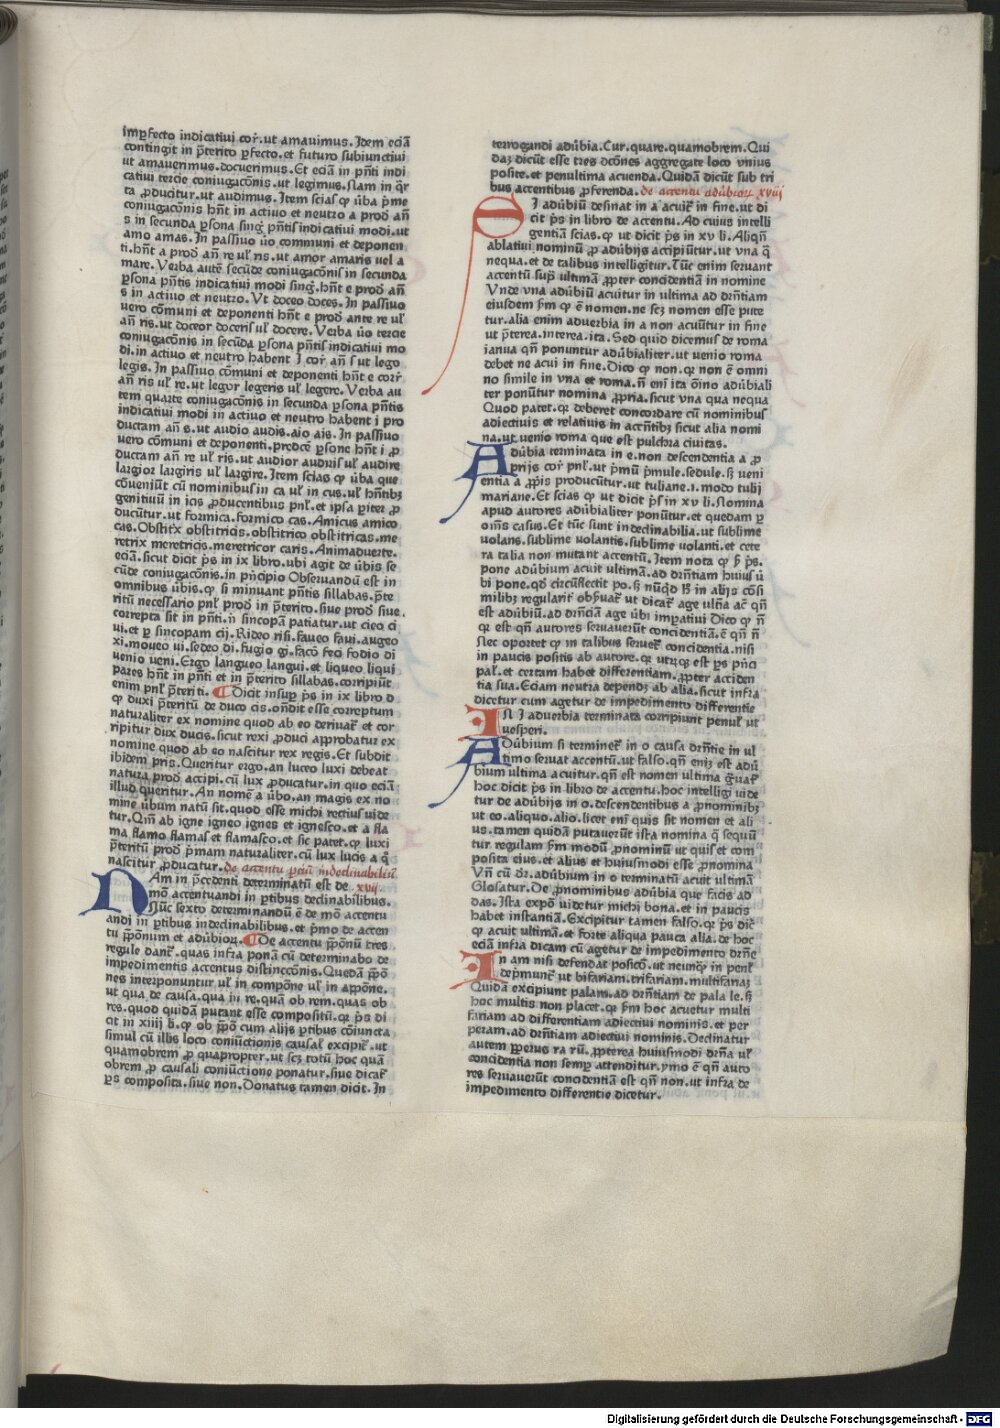 imꝑfecto indicatiui coꝛ̃.ut amauimus.Idem eciā
contingit in p̃terito ꝑfecto.et futuro subiunctiui
ut amauerimus.docuerimus.Et eciā in pñti indi
catiui tercie coniugacōnis.ut legimus.Nam in q̃r
ta ꝓducitur.ut audimus.Item scias ꝙ ũba p̃me
coniugacōnis hñt in actiuo et neutro a prod̄ añ
s in secunda ꝑsona sing̃ pñtis indicatiui modi.ut
amo amas.In passiuo ũo communi et deponen
ti.hñt a prod̄ añ re ul̃ ris.ut amor amaris uel a
mare.Verba autē secūde coniugacōnis in secunda
ꝑsona pñtis indicatiui modi sing̃.hñt e prod̄ añ
s in actiuo et neutro.Vt doceo doces.In passiuo
uero cōmuni et deponenti hñt e prod̄ ante re ul̃
añ ris.ut doceor doceris ul̃ docere.Verba ũo tercie
coniugacōnis in secūda ꝑsona pñtis indicatiui mo
di.in actiuo et neutro habent I coꝛ̃ añ s ut lego
legis.In passiuo cōmuni et deponenti hñt e corꝛ̃
añ ris ul̃ re.ut legor legeris ul̃ legere.Verba au
tem quarte coniugacōnis in secunda ꝑsona pñtis
indicatiui modi in actiuo et neutro habent i pro
ductam añ s.ut audio audis.aio ais.In passiuo
uero cōmuni et deponenti.predcē ꝑsone hñt i ꝓ
ductam añ re ul̃ ris.ut audior audiris ul̃ audire
largior largiris ul̃ largire.Item scias ꝙ ũba que
cōueniūt cū nominibus in ca ul̃ in cus.ul̃ hñtibꝫ
genitiuū in icis ꝓducentibus pnl̃.et ipsa ꝑiter ꝓ
ducūtur.ut formica.formico cas.Amicus amico
cas.Obstit̃x obstitricis.obstitrico obstitricas.me
retrix meretricis.meretricor caris.Animaduerte.
eciā.sicut dicit p̃s in ix libro.ubi agit de ũbis se
cūde coniugacōnis.in p̃ncipio Obseruandū est in
omnibus ũbis.ꝙ si minuant pñtis sillabas.p̃te
ritū necessario pnl̃ prod̄ in p̃terito.siue prod̄ siue
correpta sit in pñti.ñ sincopā patiatur.ut cieo ci
ui.et ꝑ sincopam cij.Rideo risi.faueo faui.augeo
xi.moueo ui.sedeo di.fugio gi.facō feci fodio di
uenio ueni.Ergo langueo langui.et liqueo liqui
pares hñt in pñti et in p̃terito sillabas.corripiūt
enim pnl̃ p̃teriti. ¶Dicit insuꝑ p̃s in ix libro ꝺ
ꝙ duxi p̃teritū de duco cis.oñdit esse correptum
naturaliter ex nomine quod ab eo deriuat̃ et cor
ripitur dux ducis.sicut rexi ꝓduci approbatur ex
nomine quod ab eo nascitur rex regis.Et subdit
ibidem pris.Queritur ergo.an luceo luxi debeat
natura prod̄ accipi.cū lux ꝓducatur.in quo eciā
illud queritur.An nomē a ũbo.an magis ex no
mine ũbum natū sit.quod esse michi rectius uide
tur.Qm̄ ab igne igneo ignes et ignesco.et a fla
ma flamo flamas et flamasco.et sic patet.ꝙ luxi
p̃teritū prod̄ p̃mam naturaliter.cū lux lucis a q̃
nascitur ꝓducatur.de accentu ꝑciū indeclinabiliū
Nam in p̃cedenti determinatū est de .xvij.
mō accentuandi in ꝑtibus declinabilibus.
Nūc sexto determinandū ē de mō accentu
andi in ꝑtibus indeclinabilibus.et p̃mo de accen
tu p̃pōnum et adũbioꝝ. ¶De accentu p̃pōnū tres
regule dant̃.quas infra ponā cū determinabo de
impedimentis accentus distinccōnis.Quedā p̃pō
nes interponuntur ul̃ in compōne ul̃ in appōne.
ut qua de causa.qua in re.quā ob rem.quas ob
res.quod quidā putant esse compositū.ꝙ p̃s di
cit in xiiij li.ꝙ ob p̃pō cum alijs ꝑtibus cōiuncta
simul cū illis loco coniūctionis causal̃ excipit̃.ut
quamobrem ꝓ quapropter.ut scꝫ totū hoc quā
obrem ꝓ causali coniūctione ponatur.siue dicat̃
ꝑs composita.siue non.Donatus tamen dicit.In
terrogandi adũbia.Cur.quare.quamobrem.Qui
daꝫ dicūt esse tres dcōnes aggregate loco vnius
posite.et penultima acuenda.Quidā dicūt sub tri
bus accentibus ꝓferenda.de accentu adũbioꝝ xviij
SI adũbiū desinat in a acuit̃ in fine.ut di
cit p̃s in libro de accentu.Ad cuius intelli
gentiā scias.ꝙ ut dicit p̃s in xv li.Aliqñ
ablatiui nominū ꝓ adũbijs accipiūtur.ut vna q̃
nequa.et de talibus intelligitur.Tūc enim seruant
accentū suꝑ ultimā ꝓpter concidentiā in nomine
Vnde vna adũbiū acuitur in ultima ad drñtiam
eiusdem ẜm ꝙ ē nomen.ne scꝫ nomen esse pute
tur.alia enim aduerbia in a non acuūtur in fine
ut p̃terea.interea.ita.Sed quid dicemus de roma
ianua qñ ponuntur adũbialiter.ut uenio roma
debet ne acui in fine.Dico ꝙ non.ꝙ non ē omni
no simile in vna et roma.ñ eni ita oĩno adũbiali
ter ponūtur nomina ꝓpria.sicut vna qua nequa
Quod patet.ꝙ deberet concordare cū nominibus
adiectiuis et relatiuis in accñtibꝫ sicut alia nomi
na.ut uenio roma que est pulchra ciuitas.
Adũbia terminata in e.non descendentia a ꝓ
prijs coꝛ̃ pnl̃.ut p̃mū p̃mule.sedule.sꝫ ueni
entia a ꝓpijs producūtur.ut tuliane.ı.modo tulij
mariane.Et scias ꝙ ut dicit p̃s in xv li.Nomina
apud autores adũbialiter ponūtur.et quedam ꝑ
oīns casus.Et tūc sunt indeclinabilia.ut sublime
uolans.sublime uolantis.sublime uolanti.et cete
ra talia non mutant accentū.Item nota ꝙ ẜ p̃s.
pone adũbium acuit ultimā.ad drñtiam huius ũ
bi pone.qd̃ circūflectit po.sꝫ nūqd̃ lꝫ in alijs cōsi
milibꝫ regularit̃ obẜuat̃ ut dicat̃ age ulñā ac̄ qñ
est adũbiū.ad drñciā age ũbi imꝑatiui Dico ꝙ ñ
ꝙ est qñ autores seruauerūt concidentiā.ē qñ ñ
Nec oportet ꝙ in talibus seruet̃ concidentia.nisi
in paucis positis ab autore.ꝙ utꝗꝫ est ꝑs p̃nci
pal̃.et certam habet differentiam.ꝓpter acciden
tia sua.Eciam neutra dependꝫ ab alia.sicut infra
dicetur cum agetur de impedimento differentie
IN I aduerbia terminata corripiunt penul̃ ut
uesperi.
ADũbium si terminet̃ in o causa drñtie in ul
timo seruat accentū.ut falso.qñ enīꝫ est adũ
bium ultima acuitur.qñ est nomen ultima g̃uat̃
hoc dicit p̃s in libro de accentu.hoc intelligi uide
tur de adũbijs in o.descendentibus a ꝓnominibꝫ
ut eo.aliquo.alio.licet eni quis sit nomen et ali
us.tamen quidā putauerūt ista nomina q̃ sequū
tur regulam ẜm modū ꝓnominū ut quis et com
posita eius.et alius et huiusmodi esse ꝓnomina
Vñ cū dr̃.adũbium in o terminatū acuit ultimā
Glosatur.De ꝓnominibus adũbia que facis ad
das.Ista expō uidetur michi bona.et in paucis
habet instantiā.Excipitur tamen falso.ꝙ p̃s dic̃
ꝙ acuit ultimā.et forte aliqua pauca alia.de hoc
eciā infra dicam cū agetur de impedimento drñe
IN am nisi defendat posicō.ut neunq̃ in penl̃
dep̃munt̃ ut bifariam.trifariam.multifariaꝫ
Quidā excipiunt palam.ad drñtiam de pala le.sꝫ
hoc multis non placet.ꝙ ẜm hoc acuetur multi
fariam ad differentiam adiectiui nominis.et per
peram.ad drñtiam adiectiui nominis.Declinatur
autem ꝑperus ra rū.ꝓpterea huiusmodi drña ul̃
concidentia non semꝑ attenditur.ymo ē qñ auto
res seruauerūt concidentiā est qñ non.ut infra de
impedimento differentie dicetur.
Digitalisierung gefördert durch die Deutsche Forschungsgemeinschaft - DFG